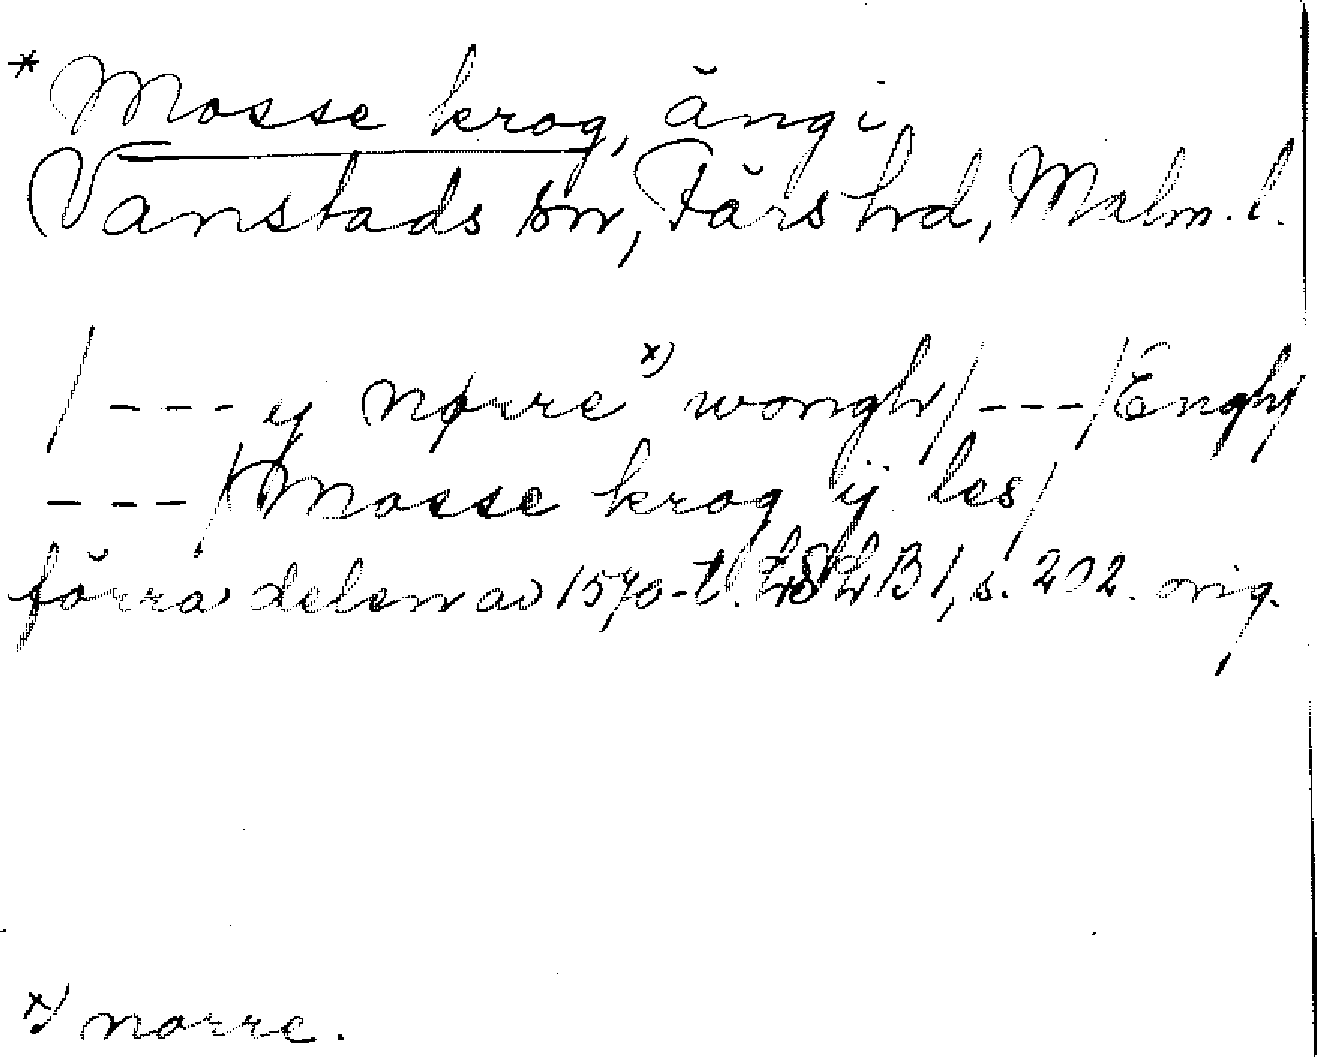 * Mosse krog, äng i
Vanstads sn, Färs hd, Malm. l.
/ --- y nørre x) wongh / --- / Engh
--- / Mosse krog ÿ les /
förra delen av 1570-t. LSLB 1, s. 202. orig.
x) norre.